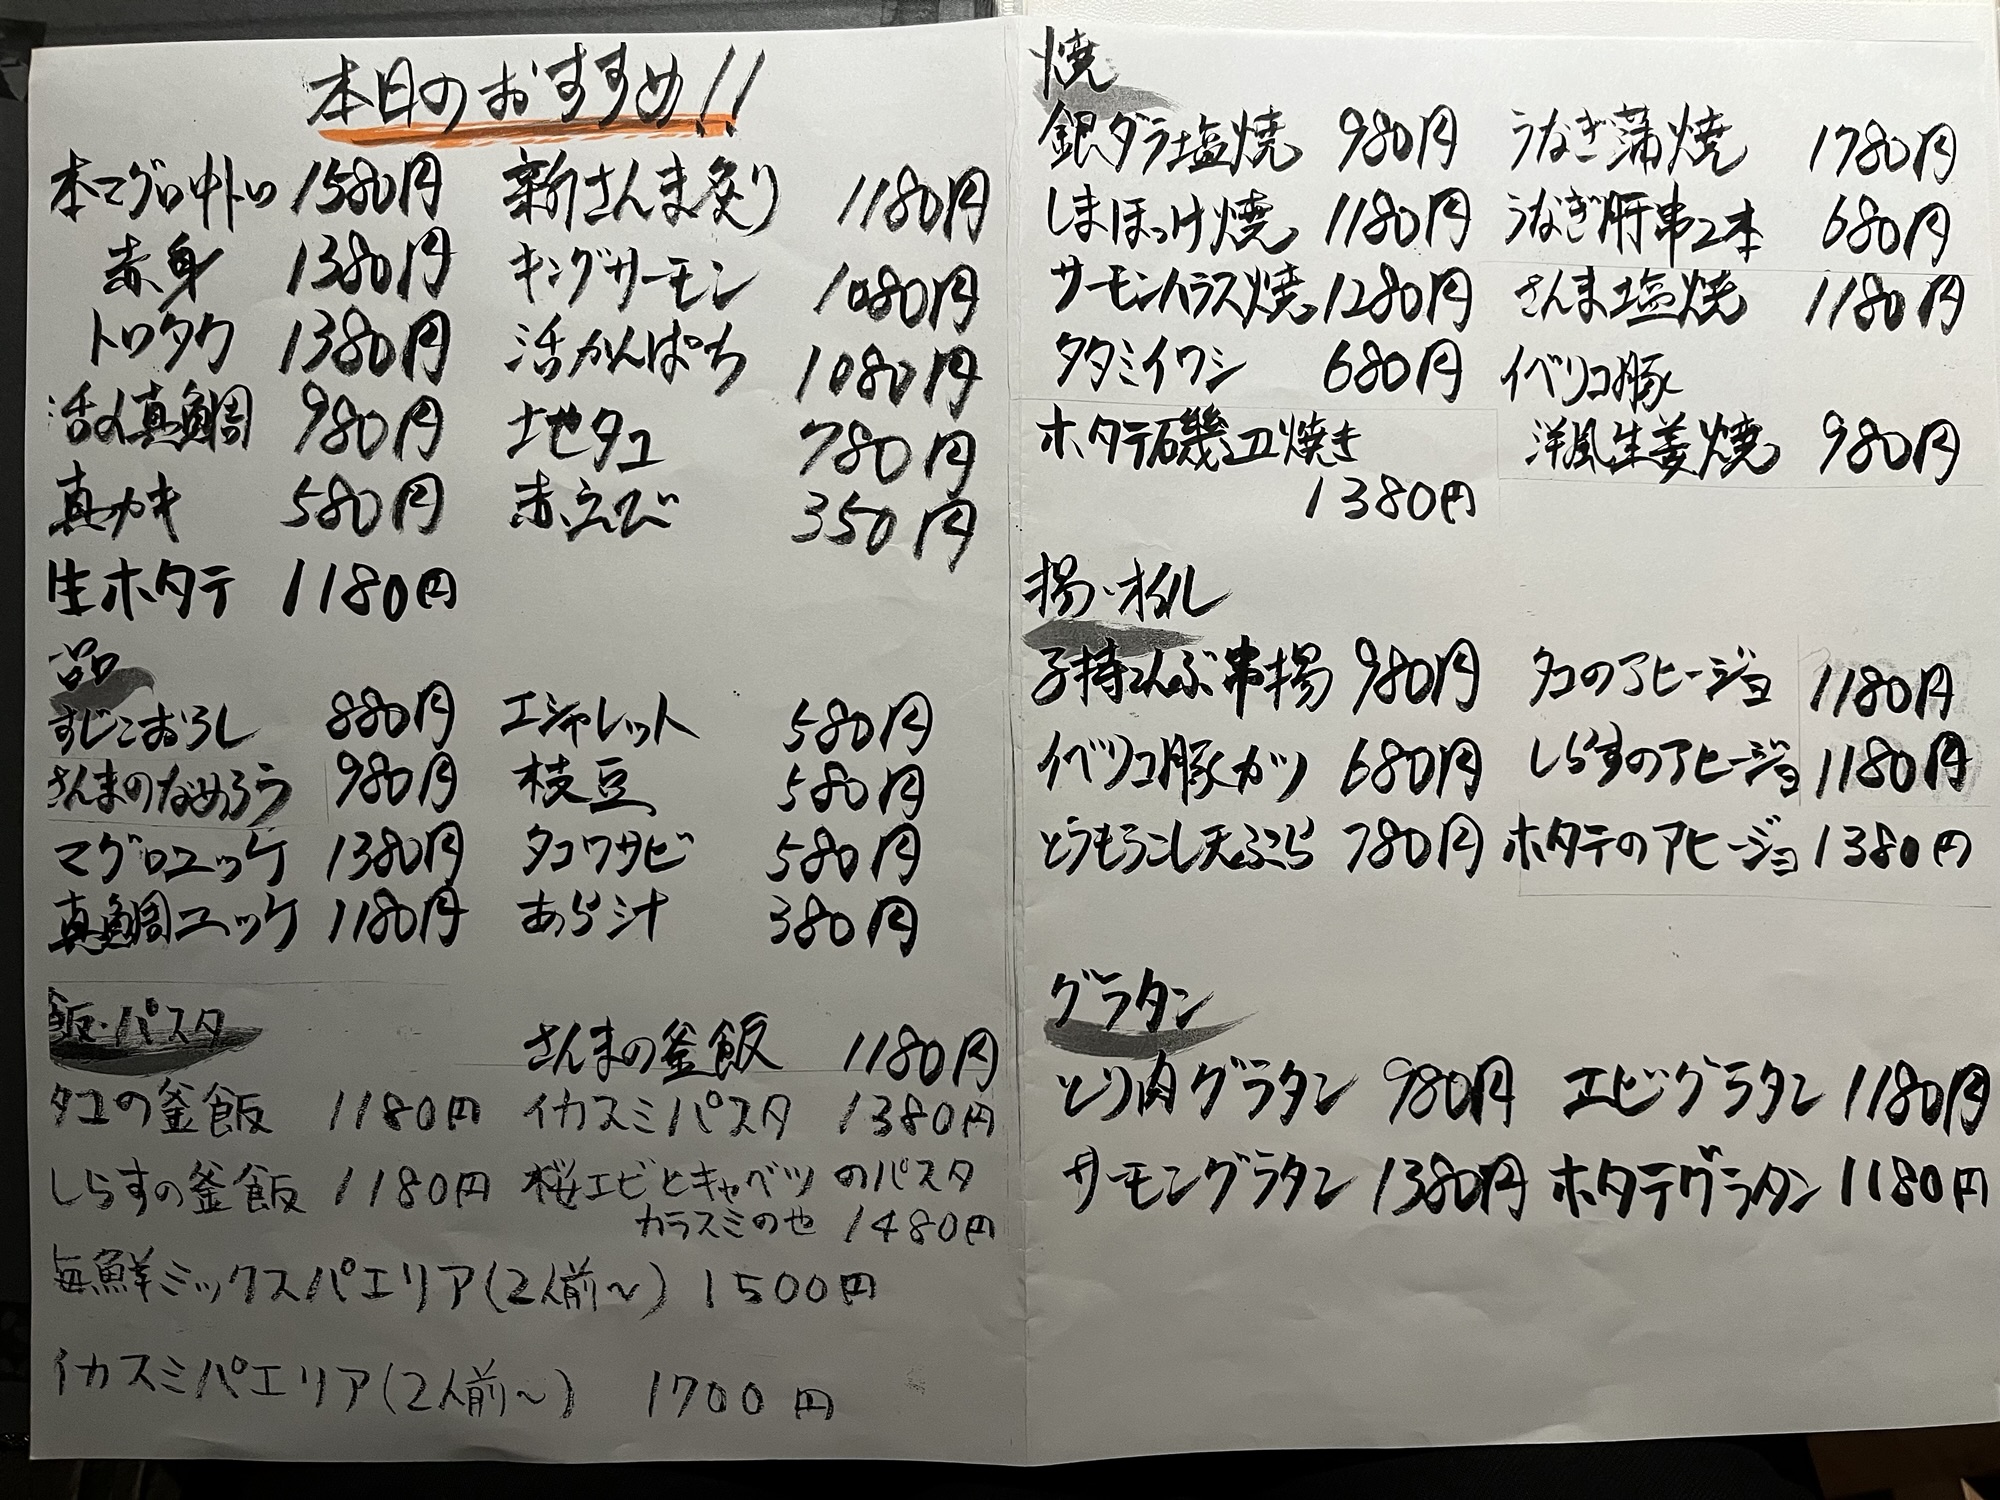 本日のおすすめ!!
本マグロ中トロ 1580円 新さんま炙り 1180円
赤身 1380円 キングサーモン 1080円
トロタク 1380円 活かんぱち 1080円
活〆真鯛 980円 地タコ 780円
真カキ 580円 赤えび 350円
生ホタテ 1180円
一品
すじこおろし 880円 エシャレット 580円
さんまのなめろう 980円 枝豆 580円
マグロユッケ 1380円 タコワサビ 580円
真鯛ユッケ 1180円 あら汁 380円
飯・パスタ
さんまの釜飯 1180円
タコの釜飯 1180円 イカスミパスタ 1380円
しらすの釜飯 1180円 桜エビとキャベツのパスタ
カラスミの也 1480円
海鮮ミックスパエリア(2人前〜) 1500円
イカスミパエリア(2人前〜) 1700円
焼
銀ダラ塩焼 980円 うなぎ蒲焼 1780円
しまほっけ焼 1180円 うなぎ肝串2本 680円
サーモンハラス焼 1280円 さんま塩焼 1180円
タタミイワシ 680円 イベリコ豚
ホタテ磯辺焼き 洋風生姜焼 980円
1380円
揚・オイル
子持こんぶ串揚 980円 タコのアヒージョ 1180円
イベリコ豚カツ 680円 しらすのアヒージョ 1180円
とうもろこし天ぷら 780円 ホタテのアヒージョ 1380円
グラタン
とり肉グラタン 980円 エビグラタン 1180円
サーモングラタン 1380円 ホタテグラタン 1180円